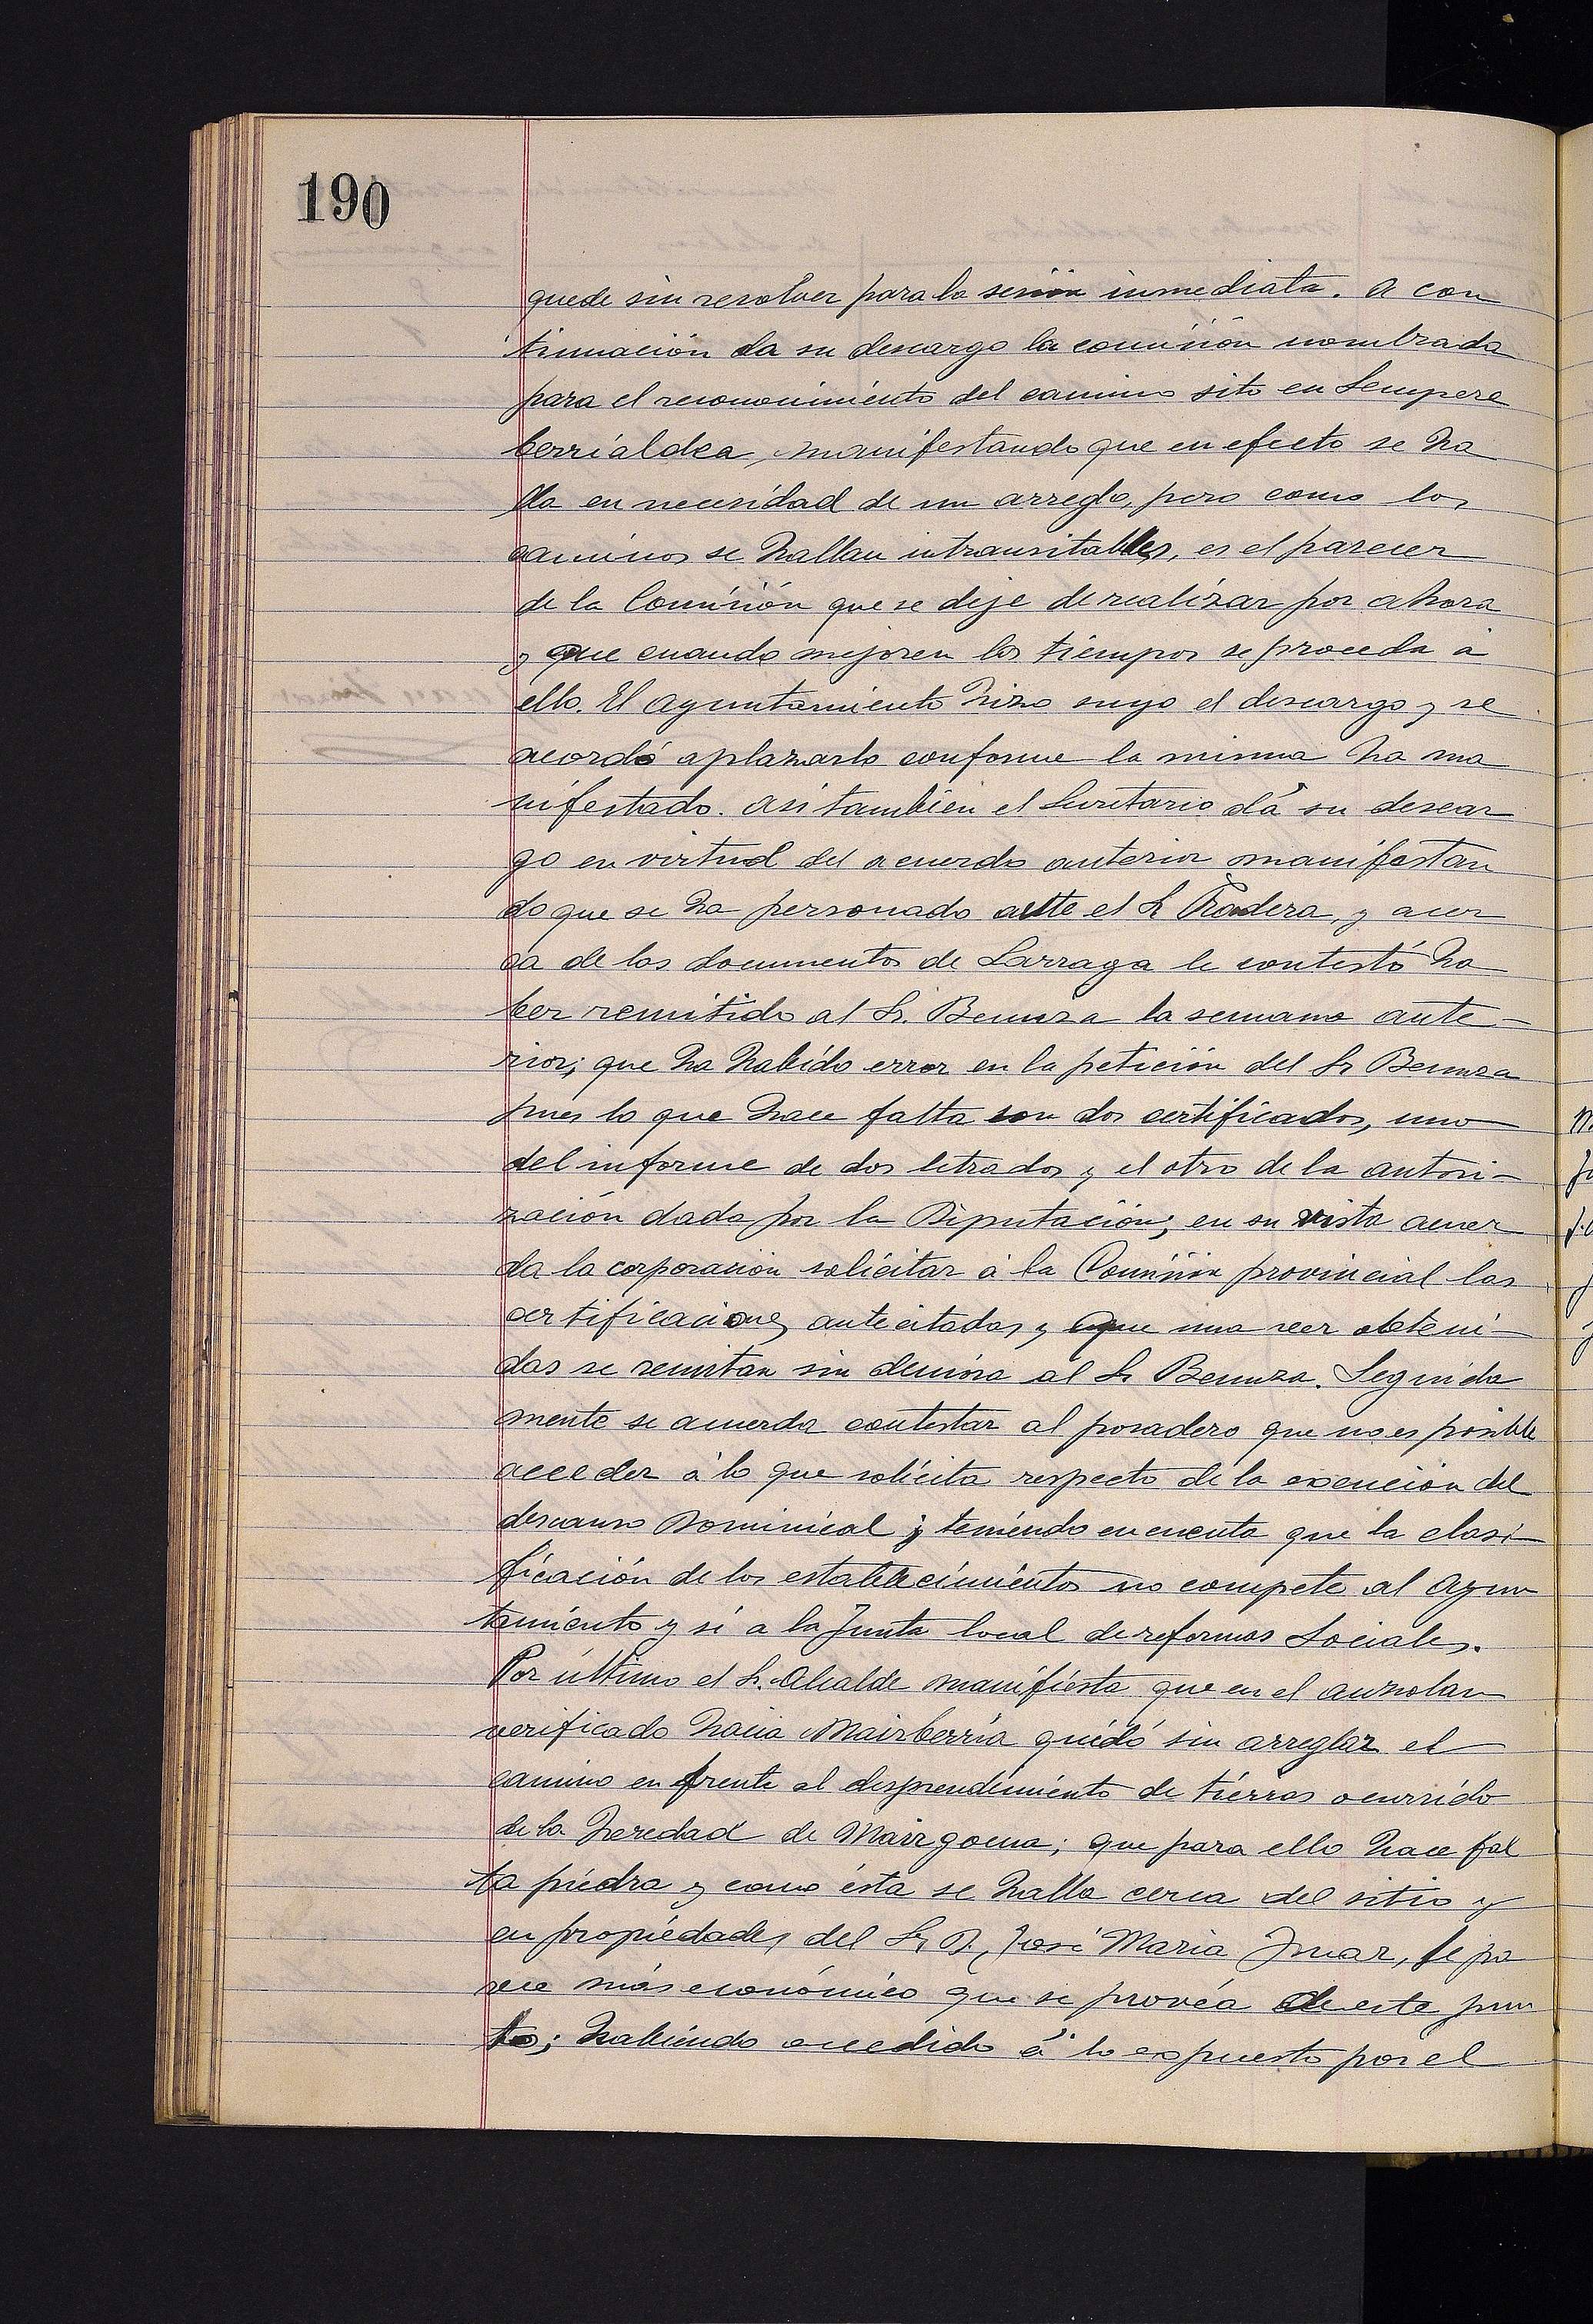 190
quede sin resolver para la sesión inmediata. A con
tinuación da su descargo la comisión nombrada
para el reconocimiento del camino sito en Sempere
berrialdea, manifestando que en efecto se ha
lla en necesidad de un arreglo, pero como los
caminos se hallan intransitables, es el parecer
de la Comisión que se deje de realizar por ahora
y que cuando mejoren los tiempos se proceda á
ello. El Ayuntamiento hizo suyo el descargo y se
acordó aplazarlo conforme la misma ha ma
nifestado. Asi tambien el Secretario dá su descar
go en virtud del acuerdo anterior manifestan
do que se ha personado ante el Sr Pradera, y acer
ca de los documentos de Larraga le contestó ha
ber remitido al Sr. Benuza la semana ante-
rior; que ha habido error en la petición del Sr Benuza
pues lo que hace falta son dos certificados, uno
del informe de dos letrados y el otro de la autori-
zación dada por la Diputación; en su vista acuer
da la corporación solicitar á la Comisión provincial las
certificaciones antecitadas y que una vez obteni-
das se remitan sin demora al Sr Benuza. Seguida
mente se acuerda contestar al posadero que no es posible
acceder á lo que solicita respecto de la exención del
descanso Dominical y teniendo en cuenta que la clasi-
ficación de los establecimientos no compete al Ayun
tamiento y si a la Junta local de reformas Sociales.
Por último el Sr. Alcalde manifiesta que en el auzolan
verificado hacia Mairberria quedó sin arreglar el
camino en frente al desprendimiento de tierras ocurrido
de la heredad de Mairgoena; que para ello hace fal
ta piedra y como ésta se halla cerca del sitio y
en propiedades del Sr D. José Maria Juar, le pa
rece más económico que se provéa de este pun
to; habiendo accedido á lo expuesto por el